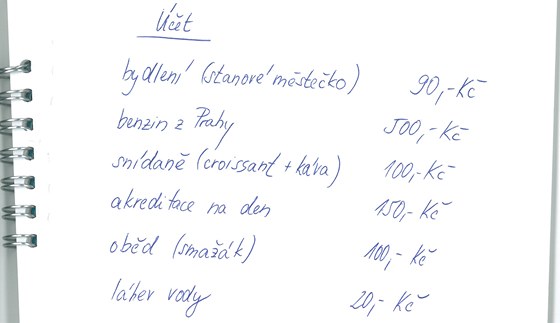 Účet
bydlení (stanové městečko) 90,-Kč
benzin z Prahy 500,-Kč
snídaně (croissant + káva) 100,-Kč
akreditace na den 150,-Kč
oběd (smažák) 100,-Kč
láhev vody 20,-Kč